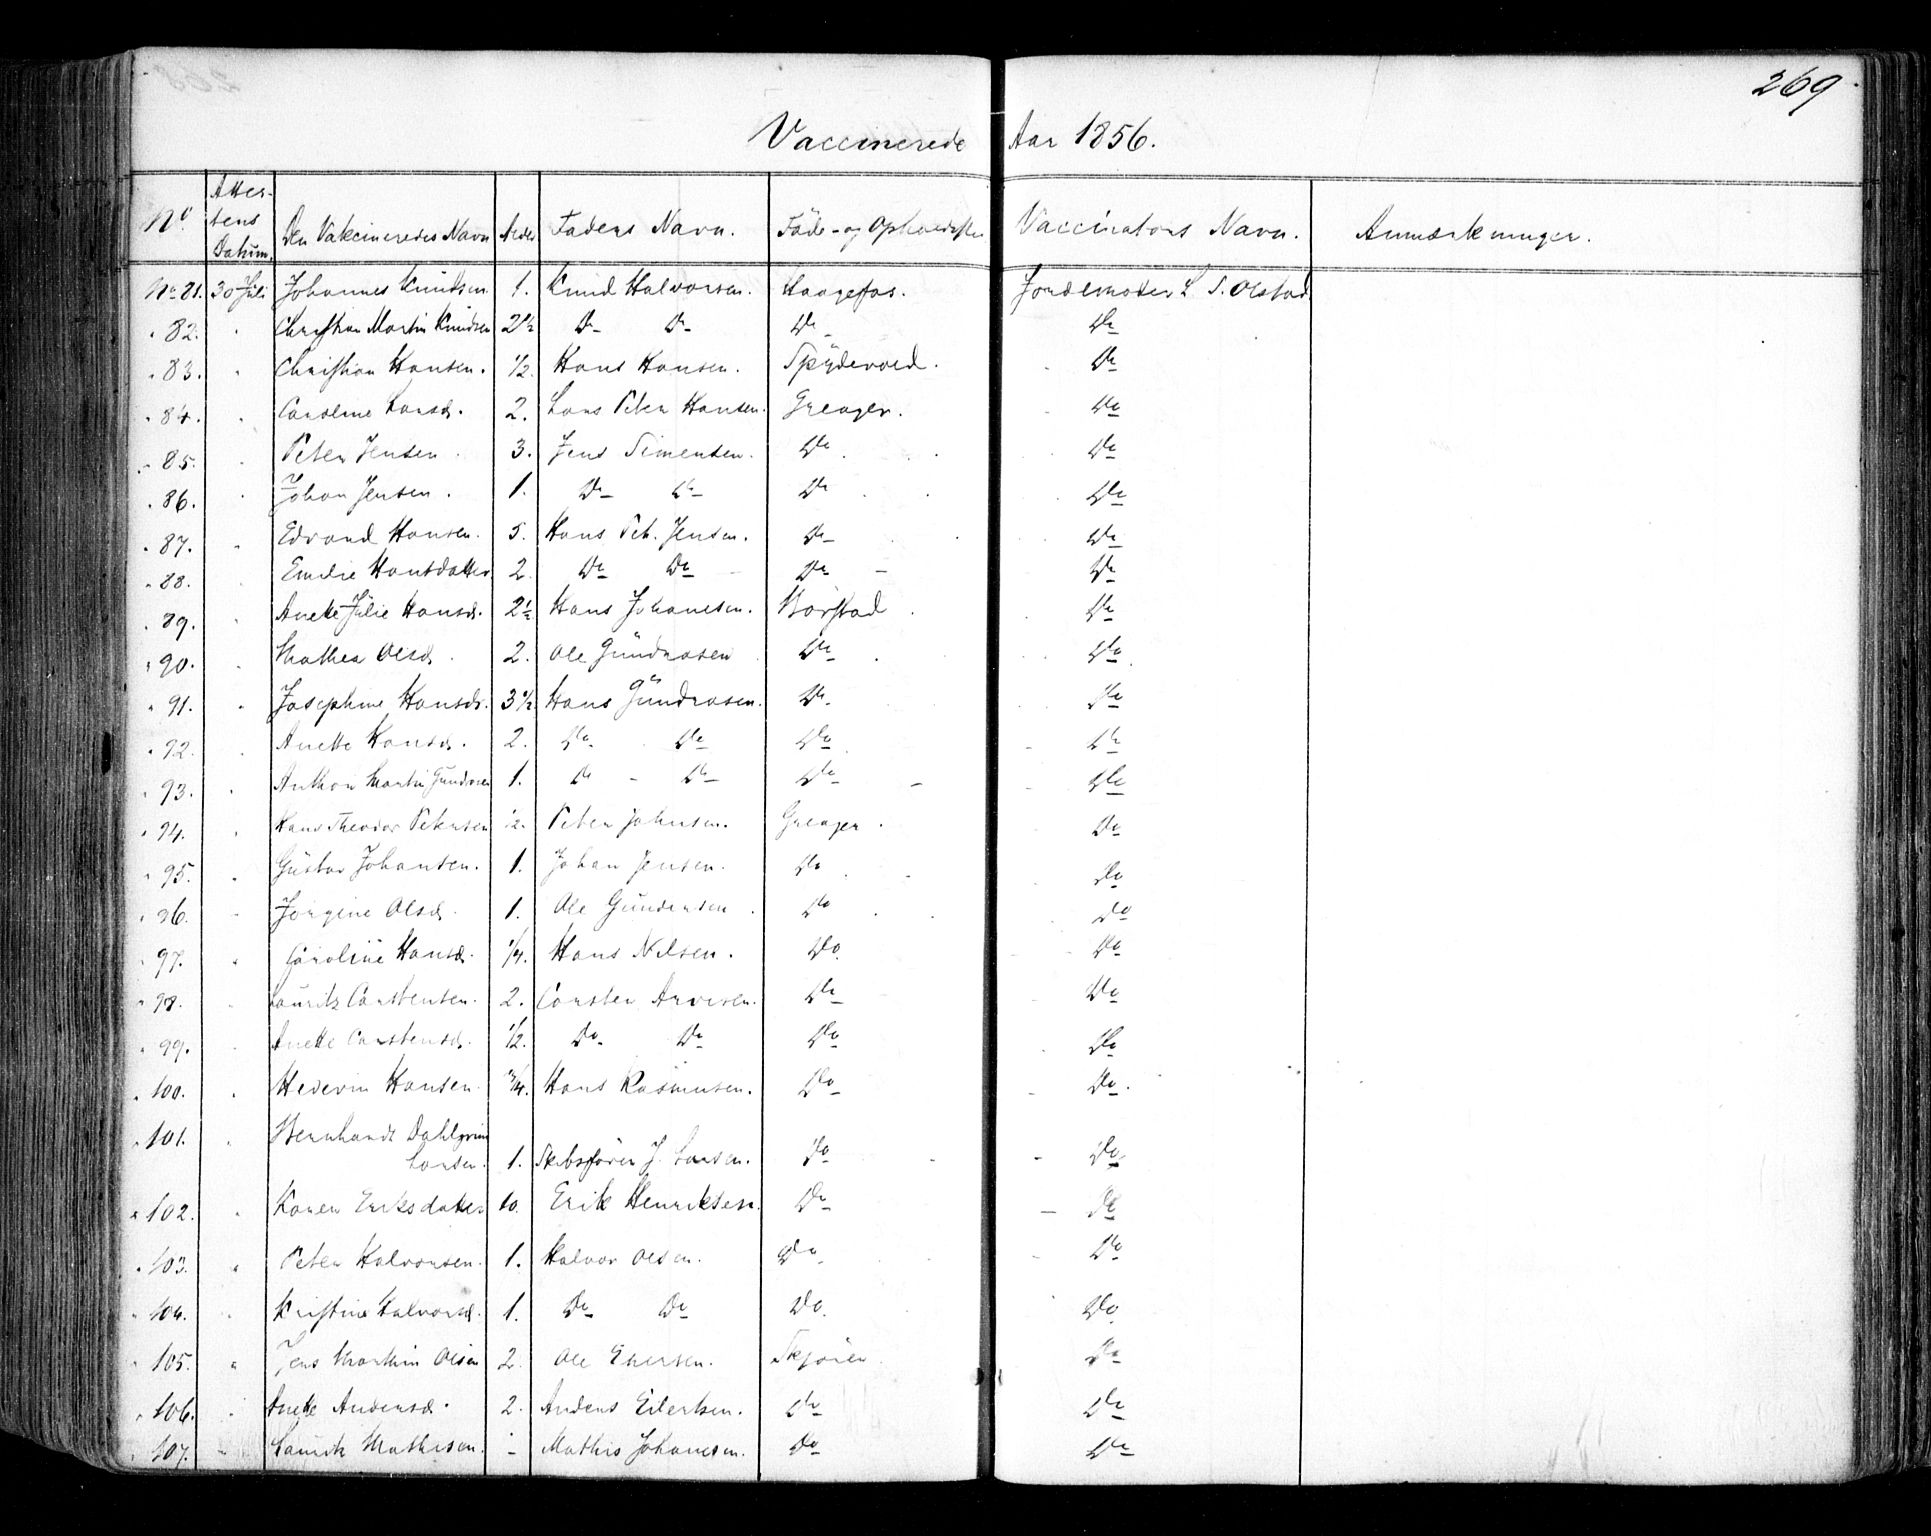 269
Vaccinerede Aar 1856.
No. Attestens Datum. Den Vakcineredes Navn Alder Faders Navn. Føde- og Opholdsste Vaccinators Navn. Anmærkninger.
No 81. 30 Juli Johannes Knudsen 1. Knud Halvorsen. Haagefos. Jordemoder L. S. Olstad
" 82. " Christian Martin Knudsen 2½ Do Do Do Do
" 83. " Christian Hansen. ½. Hans Hansen. Spydevold. Do
" 84. " Caroline Larsd. 2. Lars Peter Hansen. Greager. Do
" 85. " Peter Jensen 3. Jens Simensen. Do Do
" 86. " Johan Jensen. 1. Do Do Do Do
" 87. " Edvard Hansen. 5. Hans Pet. Jensen. Do Do
" 88. Emilie Hansdatter 2. Do Do Do Do
" 89. " Anette Julie Hansd. 2½ Hans Johannesen. Borstad Do
" 90. " Mathea Olsd. 2. Ole Gundrosen Do Do
" 91. " Josephine Hansd. 3½ Hans Gundrosen. Do Do
" 92. " Anette Hansd. 2. Do Do Do Do
" 93. " Anthon Martin Gundrosen 1. Do Do Do Do
" 94. " Hans Theodor Petersen ½. Peter Johnsen. Greager. Do
" 95. " Gustav Johansen. 1. Johan Jensen. Do Do
" 96. " Jørgine Olsd. 1. Ole Gundersen Do Do
" 97. " Caroline Hansd. ¼. Hans Nilsen. Do. Do
" 98. " Lauritz Carstensen. 2. Carsten Do Do
" 99. " Anette Carstensd. ½. Do Do Do Do
" 100. " Hansen. ¾. Hans Rasmusen. Do Do.
" 101. " Bernhardt Dahlgrim
Larsen. 1. Skibsfører J. Larsen. Do Do
" 102. " Karen Eriksdatter 10. Erik Henriksen. Do Do
" 103. " Peter Halvorsen. 1. Halvor Olsen. Do Do
" 104. " Kristine Halvorsd. 1. Do Do Do. Do
" 105. " Jens Martin Olsen 2. Ole Skjøren. Do
" 106. " Anette Andersd. 2. Anders Eilertsen. Do Do
" 107. " Mathisen. - Mathis Johannesen. Do Do